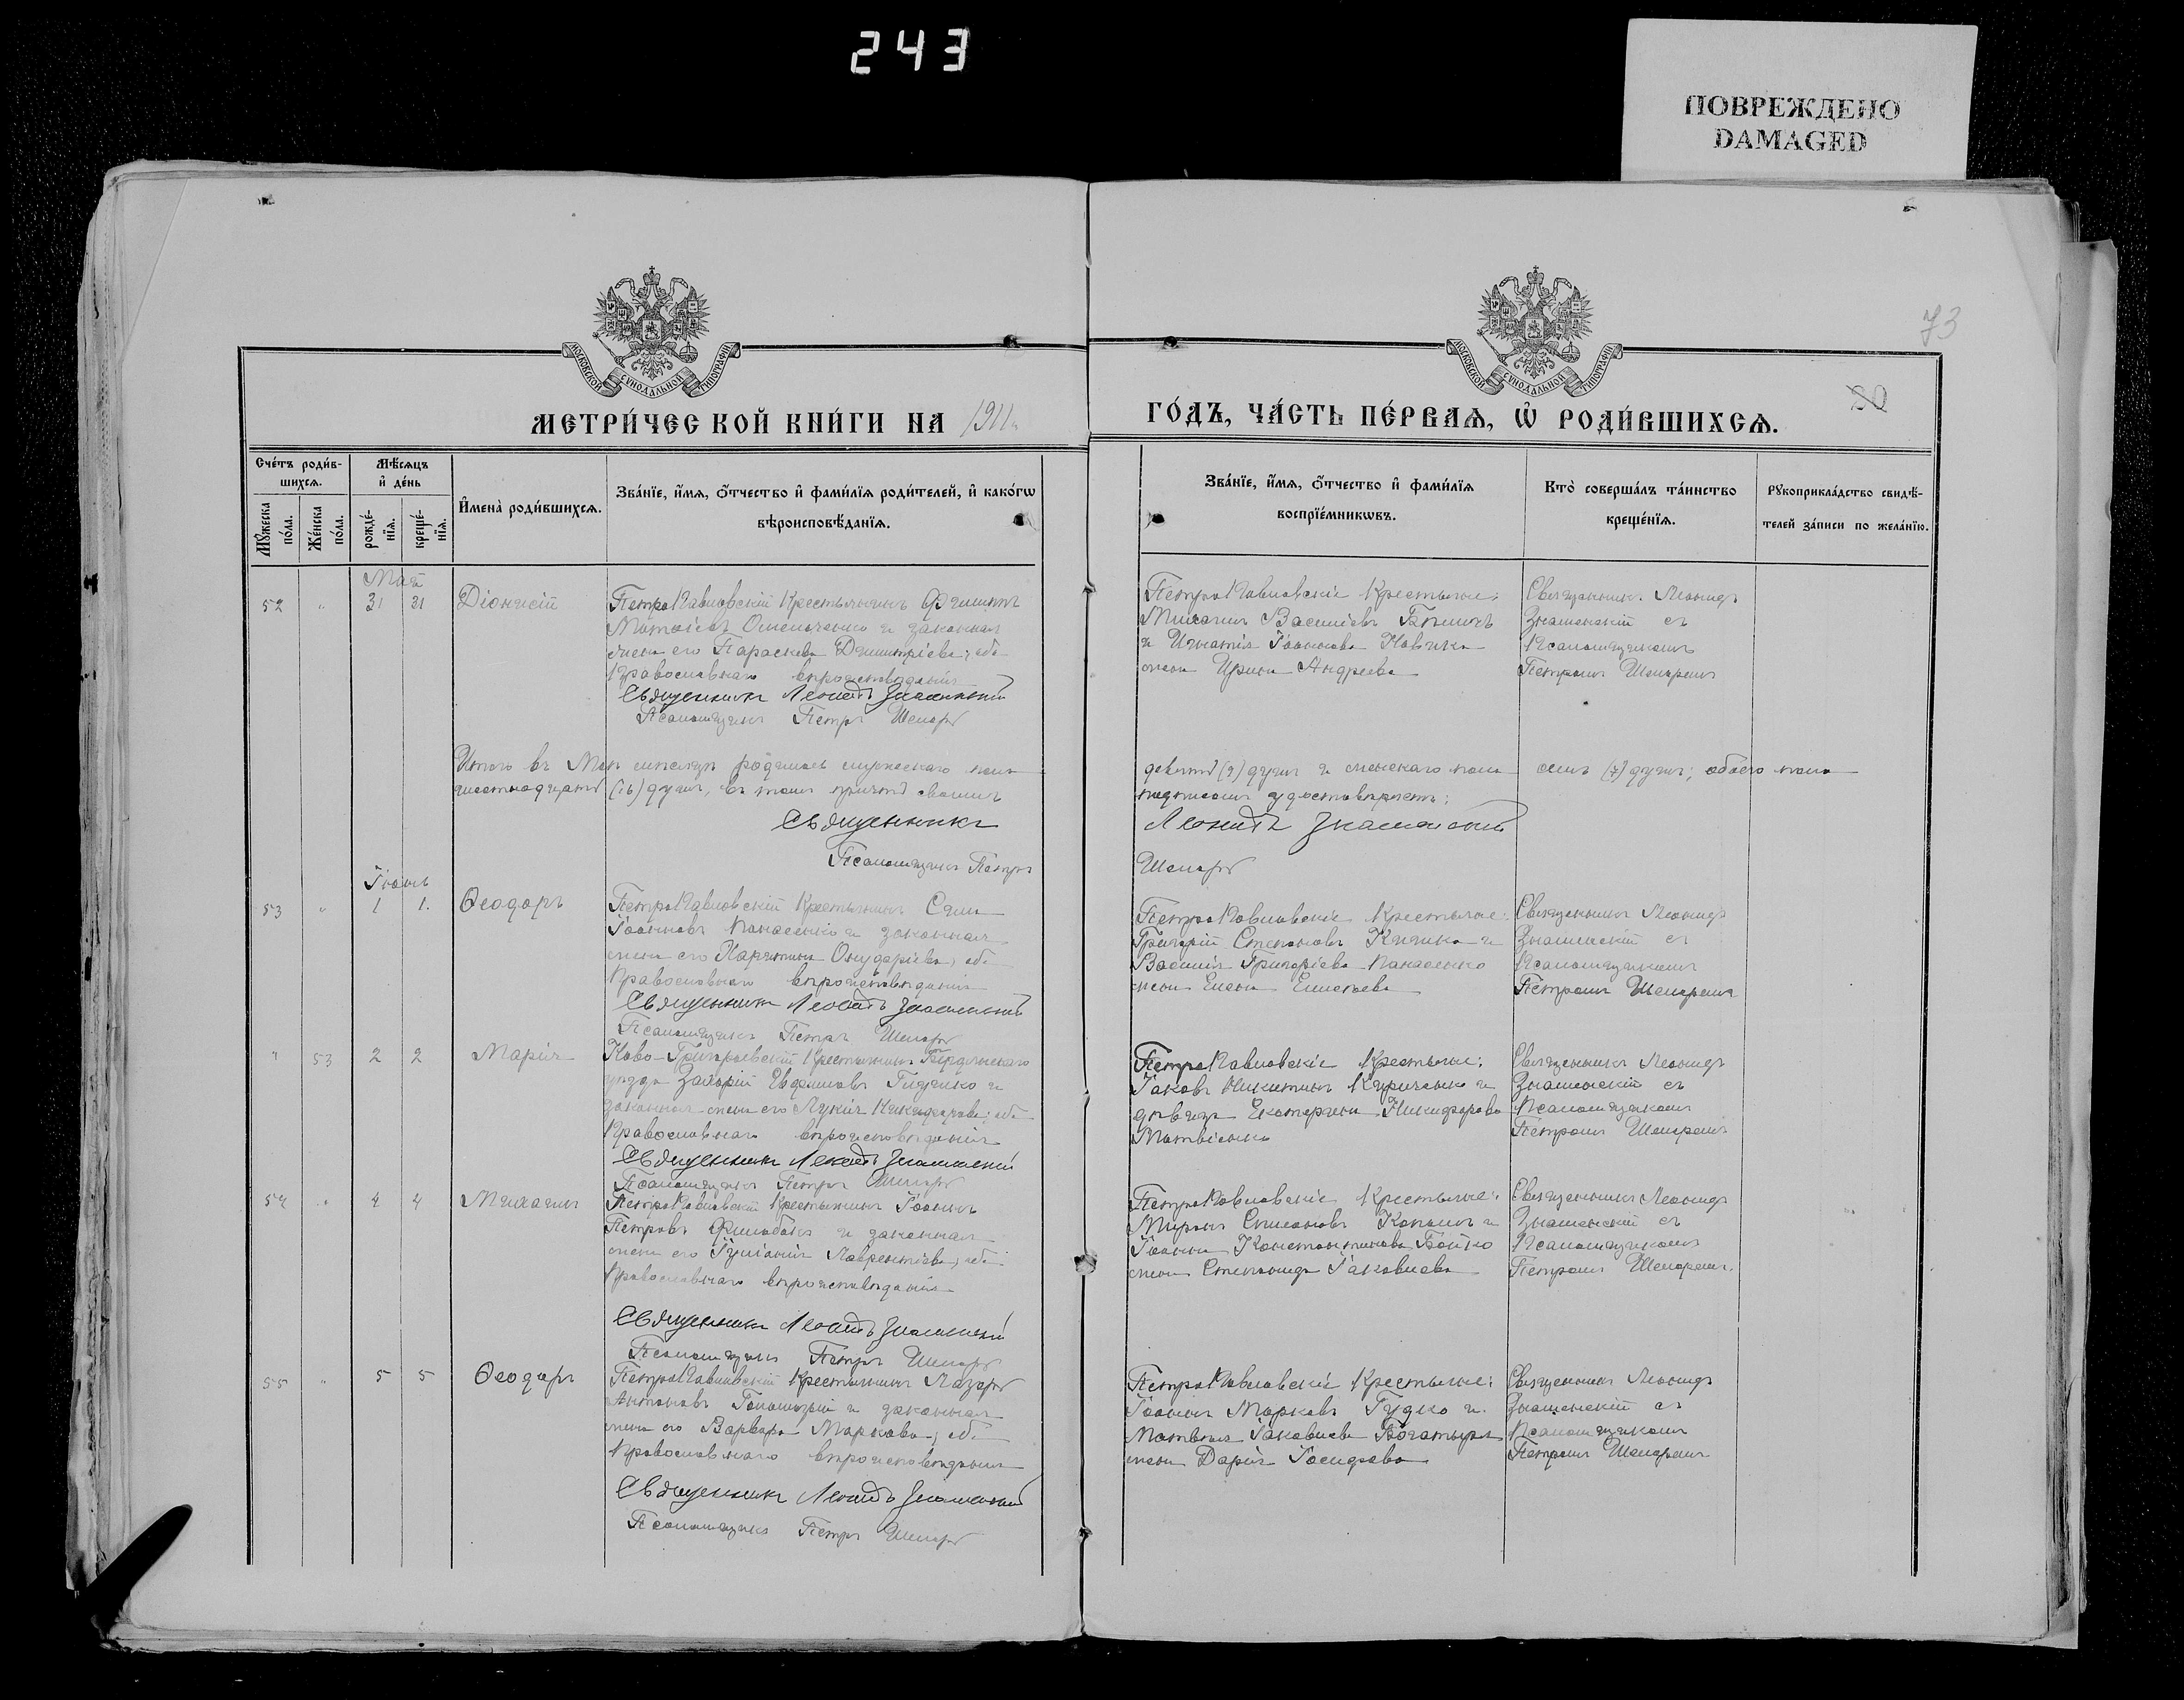 243
ПОВРЕЖДЕНО
DAMAGED
73
МОСКОВСКОЙ СѴНОДАЛЬНОЙ ТИПОГРАФІИ
МОСКОВСКОЙ СѴНОДАЛЬНОЙ ТИПОГРАФІИ
МЕТРИ́ЧЕСКОЙ КНИ́ГИ НА 1911
ГО́ДЪ, ЧА́СТЬ ПЕ́РВАѦ, Ѡ҆ РОДИ́ВШИХСѦ.
Сче́тъ роди́в-
шихсѧ.
Мꙋ́жеска по́ла.
Же́нска по́ла.
Мѣ́сѧцъ
и҆ де́нь
рожде́-
нїѧ.
креще́-
нїѧ.
И҆мена̀ роди́вшихсѧ.
Зва́нїе, и҆́мѧ, ѻ҆́тчество и҆ фами́лїѧ роди́телей, и҆ како́гѡ
вѣроисповѣ́данїѧ.
Зва́нїе, и҆́мѧ, ѻ҆́тчество и҆ фами́лїѧ
воспрїе́мникѡвъ.
Кто̀ соверша́лъ та́инство
креще́нїѧ.
Рꙋкоприкла́дство свидѣ́-
телей за́писи по жела́нїю.
Май
52 " 31 31 Діонисій
ПетроПавловскій Крестьянинъ Филиппъ
Матѳіевъ Омельченко и законная
жена его Параскева Димитріева; оба
Православнаго вѣроисповѣданія
Священникъ Леонидъ Знаменскій
Псаломщикъ Петръ Шепарь
ПетроПавловскіе Крестьяне:
Михаилъ Васильевъ
и Игнатія Іоаннова Новика
жена Ирина Андреева
Священникъ Леонидъ
Знаменскій съ
Псаломщикомъ
Петромъ Шепаремъ
Итого въ Маѣ мѣсяцѣ родилось мужескаго пола
девять (9) душъ и женскаго пола семь (7) душъ; обоего пола
шестнадцать (16) душъ, въ томъ причтъ своимъ
подписомъ удостовѣряетъ:
Священникъ Леонидъ Знаменскій
Псаломщикъ Петръ Шепарь
Іюнь
53 " 1 1. Ѳеодоръ
ПетроПавловскій Крестьянинъ Сѵла
Іоанновъ Панасенко и законная
жена его Харитина Онуфріева, оба
Православнаго вѣроисповѣданія
Священникъ Леонидъ Знаменскій
Псаломщикъ Петръ Шепарь
ПетроПавловскіе Крестьяне:
Григорій Степановъ Кичико и
Василія Григоріева Панасенко
жена Елена
Священникъ Леонидъ
Знаменскій съ
Псаломщикомъ
Петромъ Шепаремъ
" 53 2 2 Марія
Ново-Григорьевскій Крестьянинъ Бердянскаго
уѣзда Захарій Евфимовъ и
законная жена его Лукія Никифорова; оба
Православнаго вѣроисповѣданія
Священникъ Леонидъ Знаменскій
Псаломщикъ Петръ Шепарь
ПетроПавловскіе Крестьяне:
Іаковъ Никитинъ Кириченко и
дѣвица Екатерина Никифорова
Матвіенко
Священникъ Леонидъ
Знаменскій съ
Псаломщикомъ
Петромъ Шепаремъ
54 " 4 4 Михаилъ
ПетроПавловскій Крестьянинъ Іоаннъ
Петровъ и законная
жена его Іуліанія Лаврентіева, оба
Православнаго вѣроисповѣданія
Священникъ Леонидъ Знаменскій
Псаломщикъ Петръ Шепарь
ПетроПавловскіе Крестьяне:
Миронъ Симеоновъ и
Іоанна Константинова Бойко
жена Степанида Іаковлева
Священникъ Леонидъ
Знаменскій съ
Псаломщикомъ
Петромъ Шепаремъ.
55 " 5 5 Ѳеодоръ
ПетроПавловскій Крестьянинъ Лазарь
Антоновъ и законная
жена его Варвара Маркова, оба
Православнаго вѣроисповѣданія
Священникъ Леонидъ Знаменскій
Псаломщикъ Петръ Шепарь
ПетроПавловскіе Крестьяне:
Іоаннъ Марковъ Гудко и
Матвѣя Іаковлева Богатыря
жена Дарія Іосифова
Священникъ Леонидъ
Знаменскій съ
Псаломщикомъ
Петромъ Шепаремъ